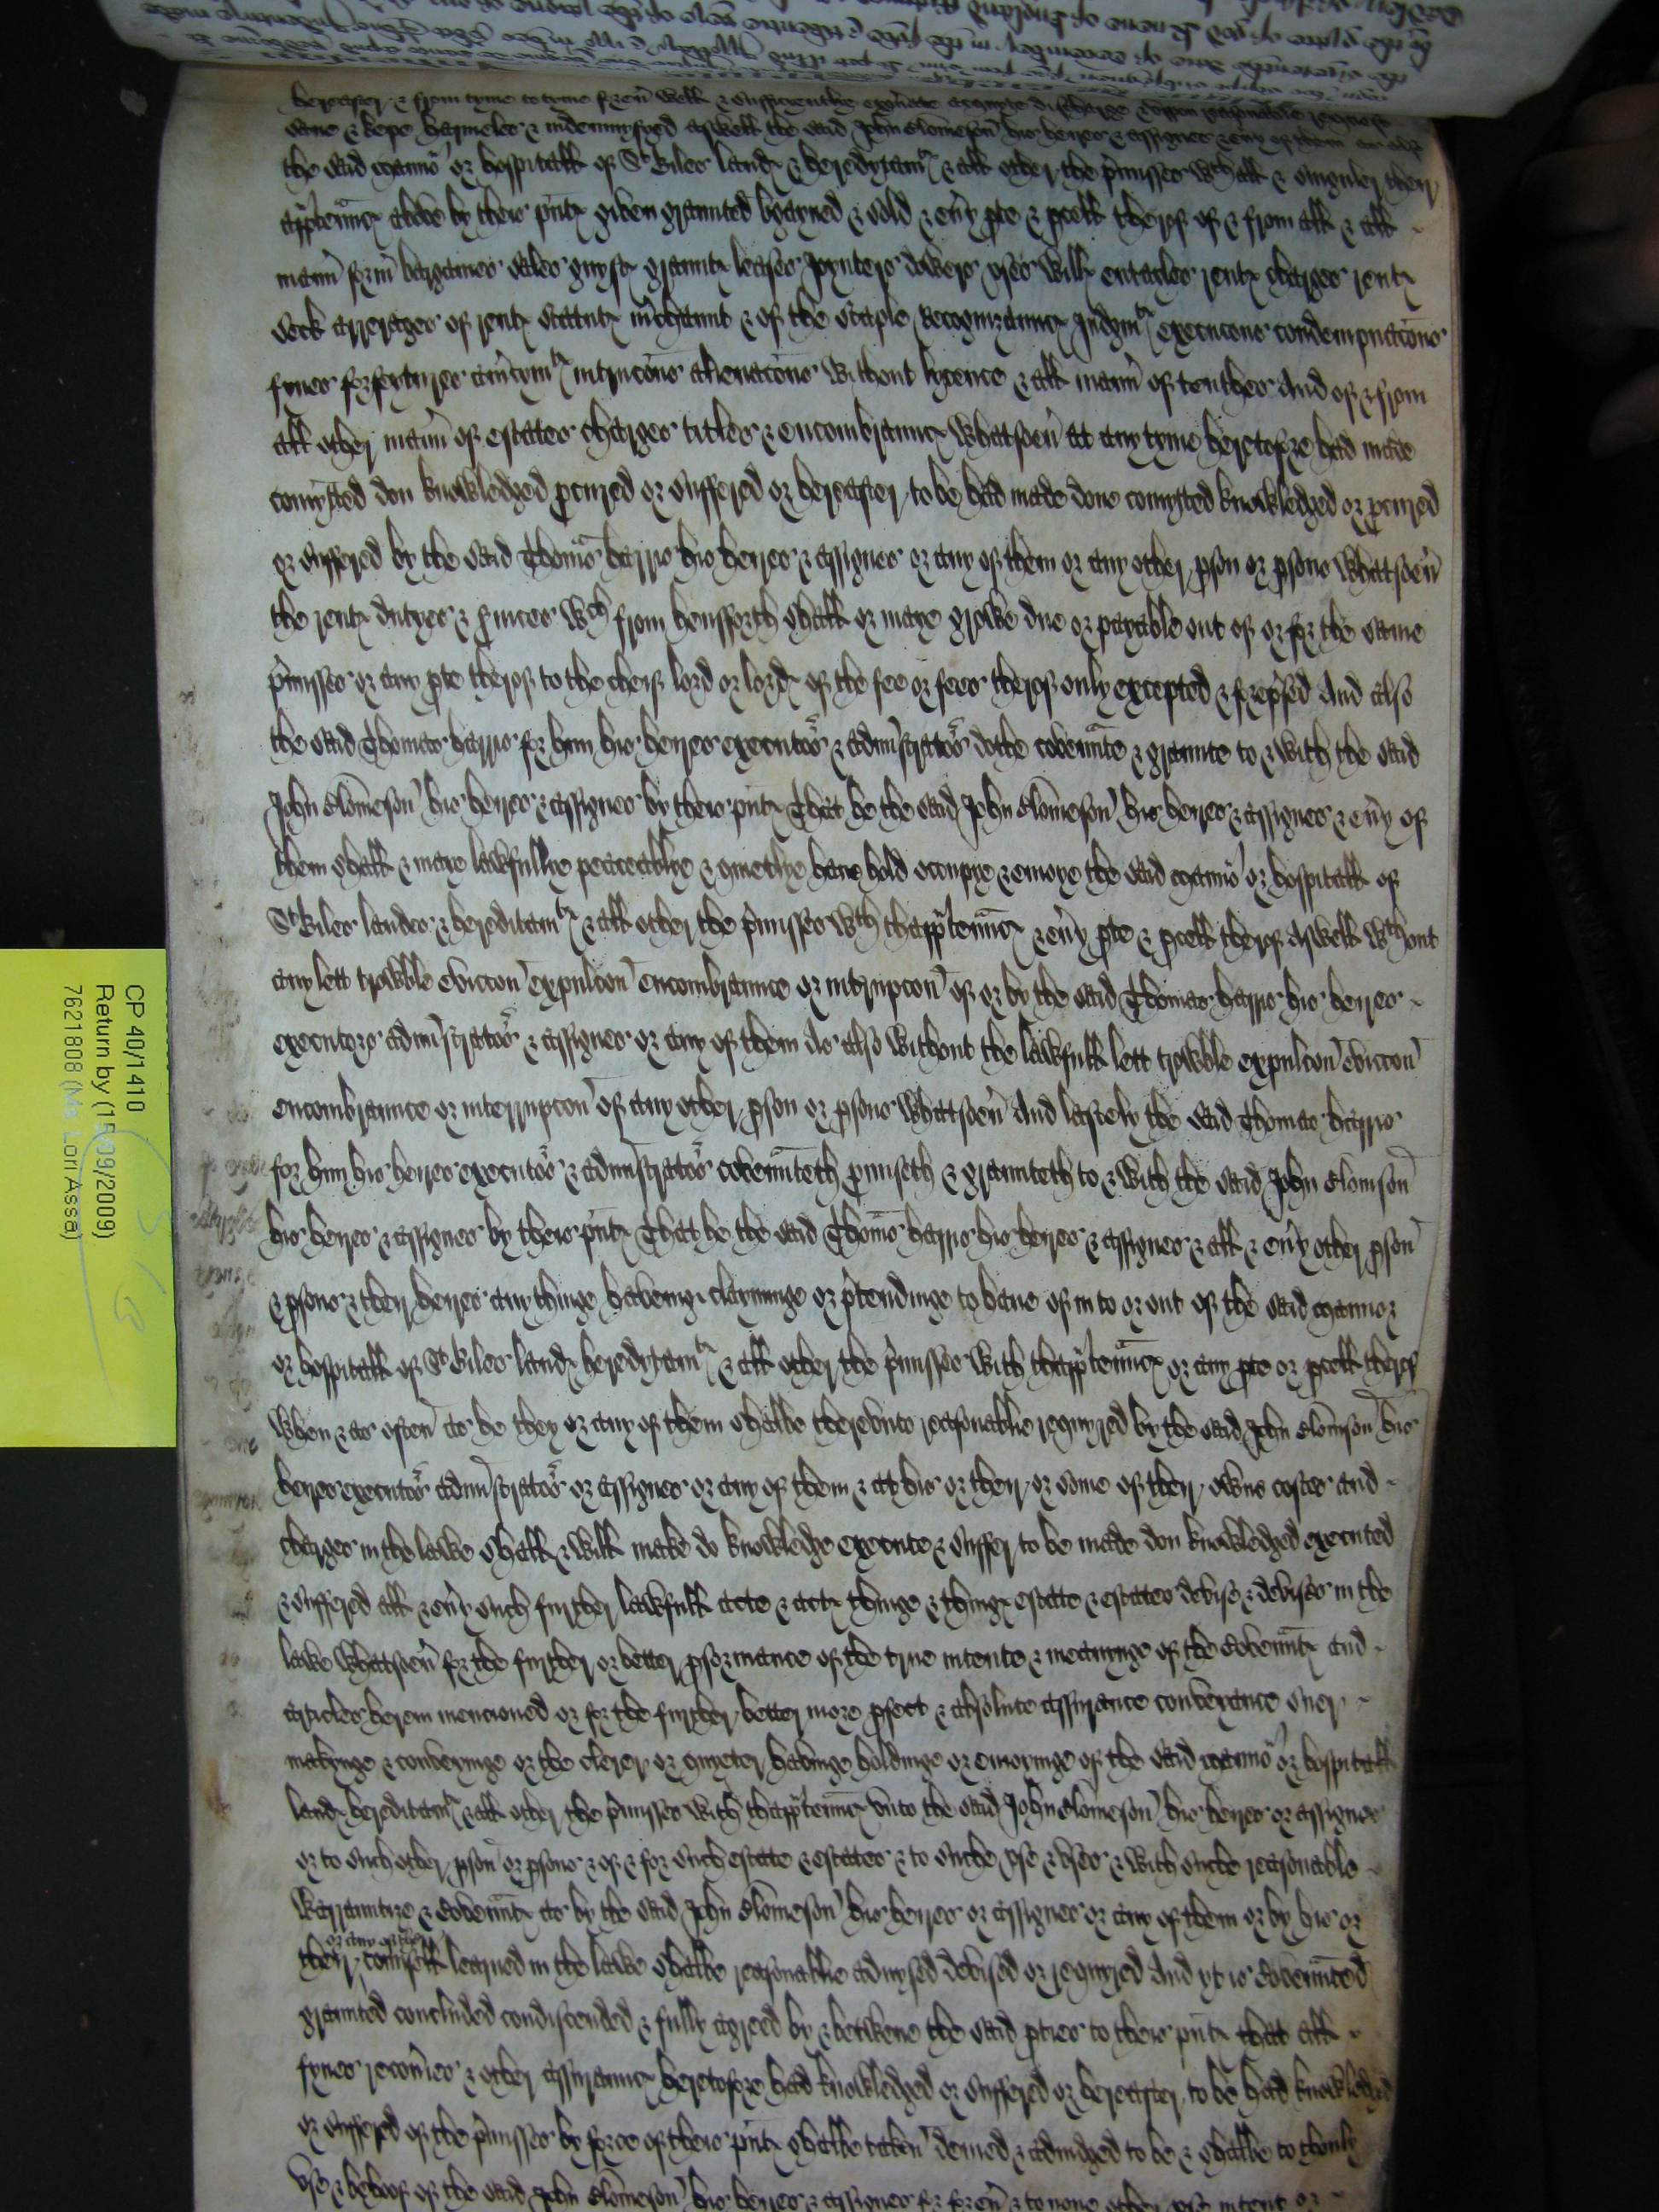 hereafter & from tyme to tyme forev' well & sufficientlie exon'ate acquyte discharge & uppon reasonable request
save & kepe harmeles & indempnyfyed aswell the said John Clomeson' his heires & assignes & ev'y of them as also
the said manno' or hospitall of St Giles land & heredytamts & all other the p'misses wth all & singuler their
app'tennc above by theis p'nt given graunted bargayned & sold & ev'y pte & pcell therof of & from all & all
mann' form' bargaines sales gyft graunt leases joynters dowers uses will entayles rent charges rent
seck arrerages of rent statut m'chaunt & of the staple Recognizannc Judgmts execucons condempnacons
fynes forfeytures am'cymts intrucons alienacons without lycence & all mann' of tenthes And of & from
all other mann' of estates charges titles & encombrannc whatsoev' at any tyme heretofore had made
comytted don knowledged pcured or suffered or hereafter to be had made done comytted knowledged or pcured
or suffered by the said Thomas harris his heires & assignes or any of them or any other pson or psons whatsoev'
the rent dutyes & s'vices wch from hensforth shall or maye growe due or payable out of or for the same
p'misses or any pte therof to the cheif lord or lord of the fee or fees therof only excepted & forep'sed And also
the said Thomas harris for hym his heires executors & admi'strators dothe coven'nte & graunte to & with the said
John Clomeson' his heires & assignes by theis p'nt That he the said John Clomeson' his heires & assignes & ev'y of
them shall & maye lawfullye peaceablye & quietlye have hold occupye & enioye the said manno' or hospitall of
St Giles landes & hereditamts & all other the p'misses wth thapp'tennc & ev'y pte & pcell therof aswell wthout
any lett trowble eviccon' expulcon' encombraunce or int'rupcon' of or by the said Thomas harris his heires
executors admi'strators & assignes or any of them As also without the lawfull lett trowble expulcon' eviccon'
encombraunce or interrupcon' of any other pson or psons whatsoev' And lastely the said Thomas harris
for hym his heires executors & admi'strators coven'nteth p'miseth & graunteth to & with the said John Clomson'
his heires & assignes by theis p'nt That he the said Thomas harris his heires & assignes & all & ev'y other pson'
& psons & their heires any thinge havenge clayminge or p'tendinge to have of in to or out of the said mannor
or hospitall of St Giles land heredytamts & all other the p'misses with thapp'tennc or any pte or pcell therof
when & as often' as he they or any of them shalbe therevnto reasonablie requyred by the said John Clomson' his
heires executors admi'strators or assignes or any of them & at his or their or some of their owne costes and
charges in the lawe shall & will make do knowledge execute & suffer to be made don knowledged executed
& suffered all & ev'y such further lawfull acte & act thinge & thing estate & estates devise & devises in the
lawe whatsoev' for the further or better pformance of the true intente & meaninge of the Coven'nt and
articles herein mencioned or for the further better more pfect & absolute assurance conveyance suer
makynge & conveyinge or the clerer or quyeter havinge holdinge or enioyinge of the said manno' or hospitall
land hereditamts & all other the p'misses with thapp'tennc vnto the said John Clomeson' his heires or assignes
or to such other pson' or psons & of & for such estate & estates & to suche vse & vses & with suche reasonable
warrantize & Coven'nt as by the said John Clomeson' his heires or assignes or any of them or by his or
or any of their
their counsell learned in the lawe shalbe reasonablie advysed devised or requyred And yt is Coven'nted
graunted concluded condiscended & fully agreed by & betwene the said pties to theis p'nt that all
fynes recov'ies & other assurannc heretofore had knowledged or suffered or hereafter to be had knowledged
or suffered of the p'misses by force of theis p'nt shalbe taken' demed & adiudged to be & shalbe to thonly
vse & behoof of the said John Clomeson' his heires & assignes for forev' & to none other vse intent or
CP 40/1410
Return by (15/09/2009)
7621808 (Ms Lori Assa)